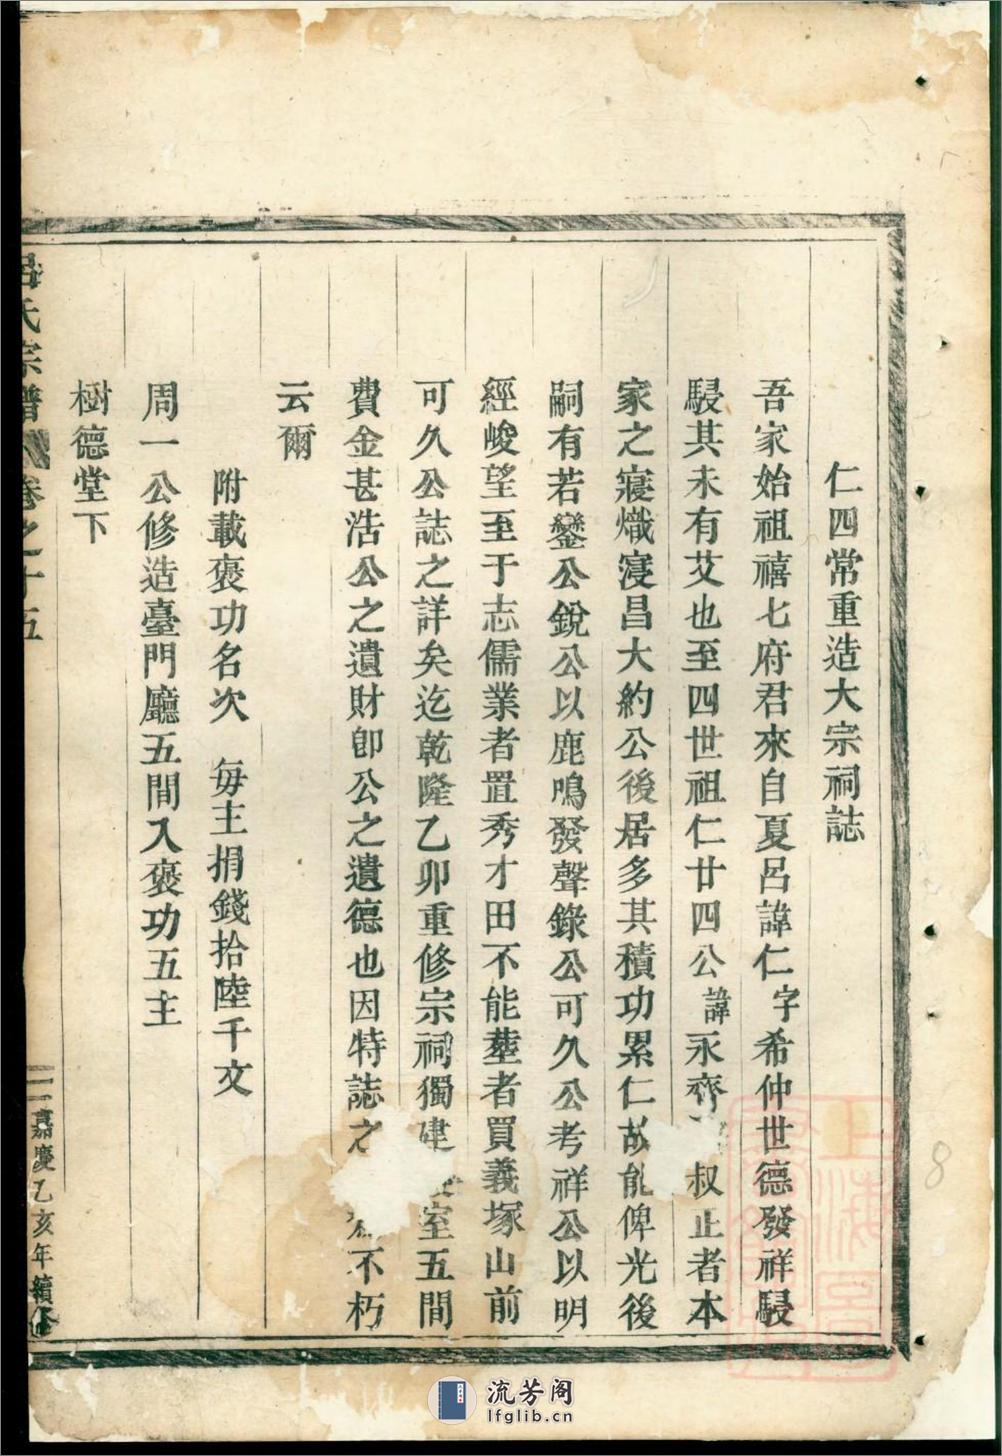 仁四常重造大宗祠誌
吾家始祖禧七府君來自夏呂諱仁字希仲世德發祥駸
駸其未有艾也至四世祖仁廿四公諱永齊叔止者本
家之寖熾寖昌大約公後居多其積功累仁故能俾光後
嗣有若鑾公銳公以鹿鳴發聲錄公可久公考祥公以明
經峻望至于志儒業者置秀才田不能塟者買義塚山前
可久公誌之詳矣迄乾隆乙卯重修宗祠獨建室五間
費金甚浩公之遺財卽公之遺德也因特誌之不朽
云爾
附載褒功名次 每主捐錢拾陸千文
周一公修造臺門廳五間入褒功五主
樹德堂下
呂氏宗譜 卷之十五
嘉慶乙亥年續修
8
流芳阁
lfglib.cn